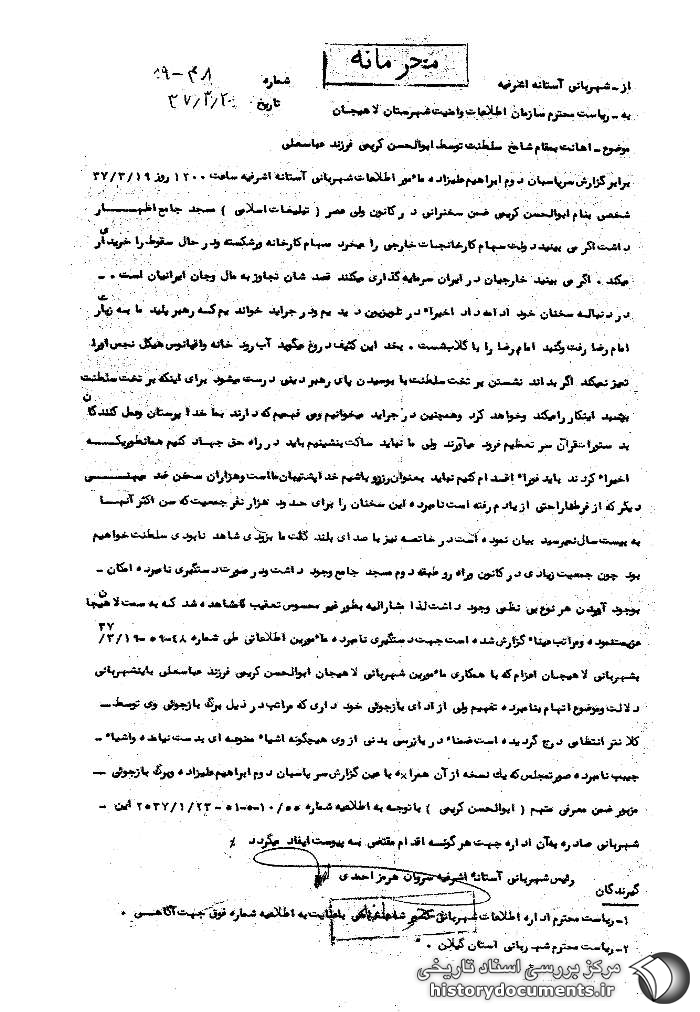 محرمانه
از ـ شهربانی آستانه اشرفیه
شماره ۴۸-۰۹
به ـ ریاست محترم سازمان اطلاعات وامنیت شهرستان لاهیجان
تاریخ ۳۷/۳/۲۰
موضوع ـ اهانت بمقام شامخ سلطنت توسط ابوالحسن کریمی فرزند عباسعلی
برابر گزارش سرپاسبان دوم ابراهیم علیزاده مأمور اطلاعات شهربانی آستانه اشرفیه ساعت ۱۲۰۰ روز ۳۷/۳/۱۹
شخصی بنام ابوالحسن کریمی ضمن سخنرانی در کانون ولی عصر ( تبلیغات اسلامی ) مسجد جامع اظهار
داشت اگر می بینید دولت سهام کارخانجات خارجی را میخرد سهام کارخانه ورشکسته ودر حال سقوط را خریداری
میکند . اگر می بینید خارجیان در ایران سرمایه گذاری میکنند قصد شان تجاوز به مال وجان ایرانیان است . ـ
در دنباله سخنان خود ادامه داد اخیراً در تلویزیون دیدیم ودر جراید خواندیم که رهبر پلید ما به زیارت
امام رضا رفت وگنبد امام رضا را با گلاب شست . بخدا این کثیف دروغ میگوید آب رودخانه واقیانوس هیکل نجس اورا
تمیز نمیکند اگر بداند نشستن بر تخت سلطنت با بوسیدن پای رهبر دینی درست میشود برای اینکه بر تخت سلطنت
بنشیند اینکار را میکند وخواهد کرد وهمچنین در جراید میخوانیم ومی فهمیم که دارند بما خدا پرستان وعمل کنندگان
بدستورات قرآن سر تعظیم فرود میآورند ولی ما نباید ساکت بنشینیم باید در راه حق جهاد کنیم همانطوریکه
اخیراً کردند باید فوراً اقدام کنیم نباید بعنوان رزرو باشیم خدا پشتیبان ماست وهزاران سخن ضد میهنی
دیگر که از فرط ناراحتی از یادم رفته است نامبرده این سخنان را برای حدود هزار نفر جمعیت که سن اکثر آنها
به بیست سال نمیرسید بیان نموده است در خاتمه نیز با صدای بلند گفت ما بزودی شاهد نابودی سلطنت خواهیم
بود چون جمعیت زیادی در کانون وراه رو طبقه دوم مسجد جامع وجود داشت ودر صورت دستگیری نامبرده امکان ـ
بوجود آوردن هر نوع بی نظمی وجود داشت لذا مشارالیه بطور غیر محسوس تعقیب تا مشاهده شد که به سمت لاهیجان
عزیمت نموده ومراتب عیناً گزارش شده است جهت دستگیری نامبرده مأمورین اطلاعاتی طی شماره ۴۸-۰۹-۳۷/۳/۱۹
بشهربانی لاهیجان اعزام که با همکاری مأمورین شهربانی لاهیجان ابوالحسن کریمی فرزند عباسعلی باینشهربانی
دلالت وموضوع اتهام بنامبرده تفهیم ولی از ادای بازجوئی خود داری که مراتب در ذیل برگ بازجوئی وی توسط ـ
کلانتر انتظامی درج گردیده است ضمناً در بازرسی بدنی از وی هیچگونه اشیاء ممنوعه ای بدست نیامده واشیاء ـ
جیب نامبرده صورتمجلس که یک نسخه از آن همراه با عین گزارش سرپاسبان دوم ابراهیم علیزاده وبرگ بازجوئی ـ
مزبور ضمن معرفی متهم ( ابوالحسن کریمی ) با توجه به اطلاعیه شماره ۲۵۳۷/۱/۲۳-۰۱-۵-۱۰/۵۵ این ـ
شهربانی صادره به آن اداره جهت هر گونه اقدام مقتضی به پیوست ایفاد میگردد
رئیس شهربانی آستانه اشرفیه سروان هرمز احمدی
گیرندگان
۱ـ ریاست محترم اداره اطلاعات شهربانی کشور شاهنشاهی باعنایت به اطلاعیه شماره فوق جهت آگاهی .
۲ـ ریاست محترم شهربانی استان گیلان .
مرکز بررسی اسناد تاریخی
historydocuments.ir